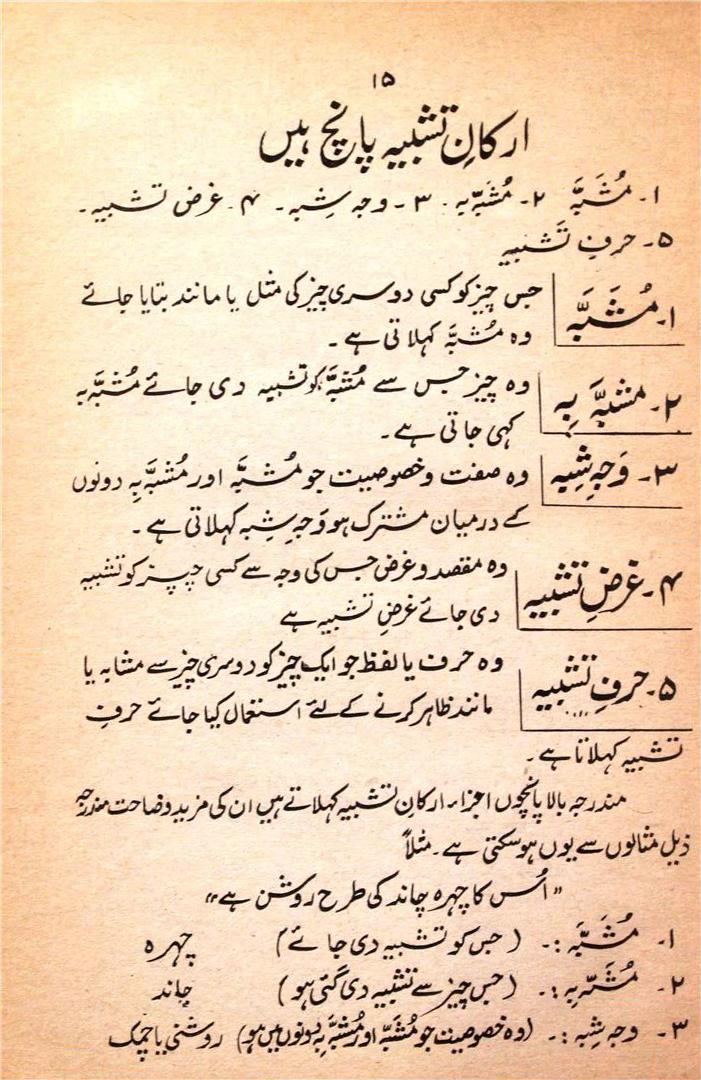 ۱۵
ارکانِ تشبیہ پانچ ہیں
۱۔ مُشَبَّہ ۲۔ مُشَبَّہ بہ ۔ ۳ ۔ وجہِ شِبہ ۔ ۴ ۔ غرضِ تشبیہ ۔
۵ ۔ حرفِ تَشبیہ
۱۔ مُشَبَّہ جس چیز کو کسی دوسری چیز کی مثل یا مانند بتایا جائے
وہ مُشبَّہ کہلاتی ہے ۔
۲۔ مشبہَّ بِہ وہ چیز جس سے مُشبَّہ کو تشبیہ دی جائے مُشبَّہ بہ
کہی جاتی ہے ۔
۳۔ وَجہِ شِبہ وہ صفت و خصوصیت جو مُشبَّہ اور مُشبَّہ بِہ دونوں
کے درمیان مشترک ہو وَجہِ شِبہ کہلاتی ہے ۔
۴۔ غرضِ تشبیہ وہ مقصد و غرض جس کی وجہ سے کسی چیز کو تشبیہ
دی جائے غرضِ تشبیہ ہے
۵۔ حرفِ تشبیہ وہ حرف یا لفظ جو ایک چیز کو دوسری چیز سے مشابہ یا
مانند ظاہر کرنے کے لئے استعمال کیا جائے حرفِ
تشبیہ کہلاتا ہے ۔
مندرجہ بالا پانچوں اجزاء ارکانِ تشبیہ کہلاتے ہیں ان کی مزید وضاحت مندرجہ
ذیل مثالوں سے یوں ہو سکتی ہے ۔ مثلاً
"اُس کا چہرہ چاند کی طرح روشن ہے"
۱۔ مُشَبَّہ :۔ (جس کو تشبیہ دی جائے) چہرہ
۲۔ مُشَبَّہ بِہ :۔ (جس چیز سے تشبیہ دی گئی ہو) چاند
۳۔ وجہ شِبہ :۔ (وہ خصوصیت جو مُشبَّہ اور مُشبَّہ بِہ دونوں میں ہو) روشنی یا چمک